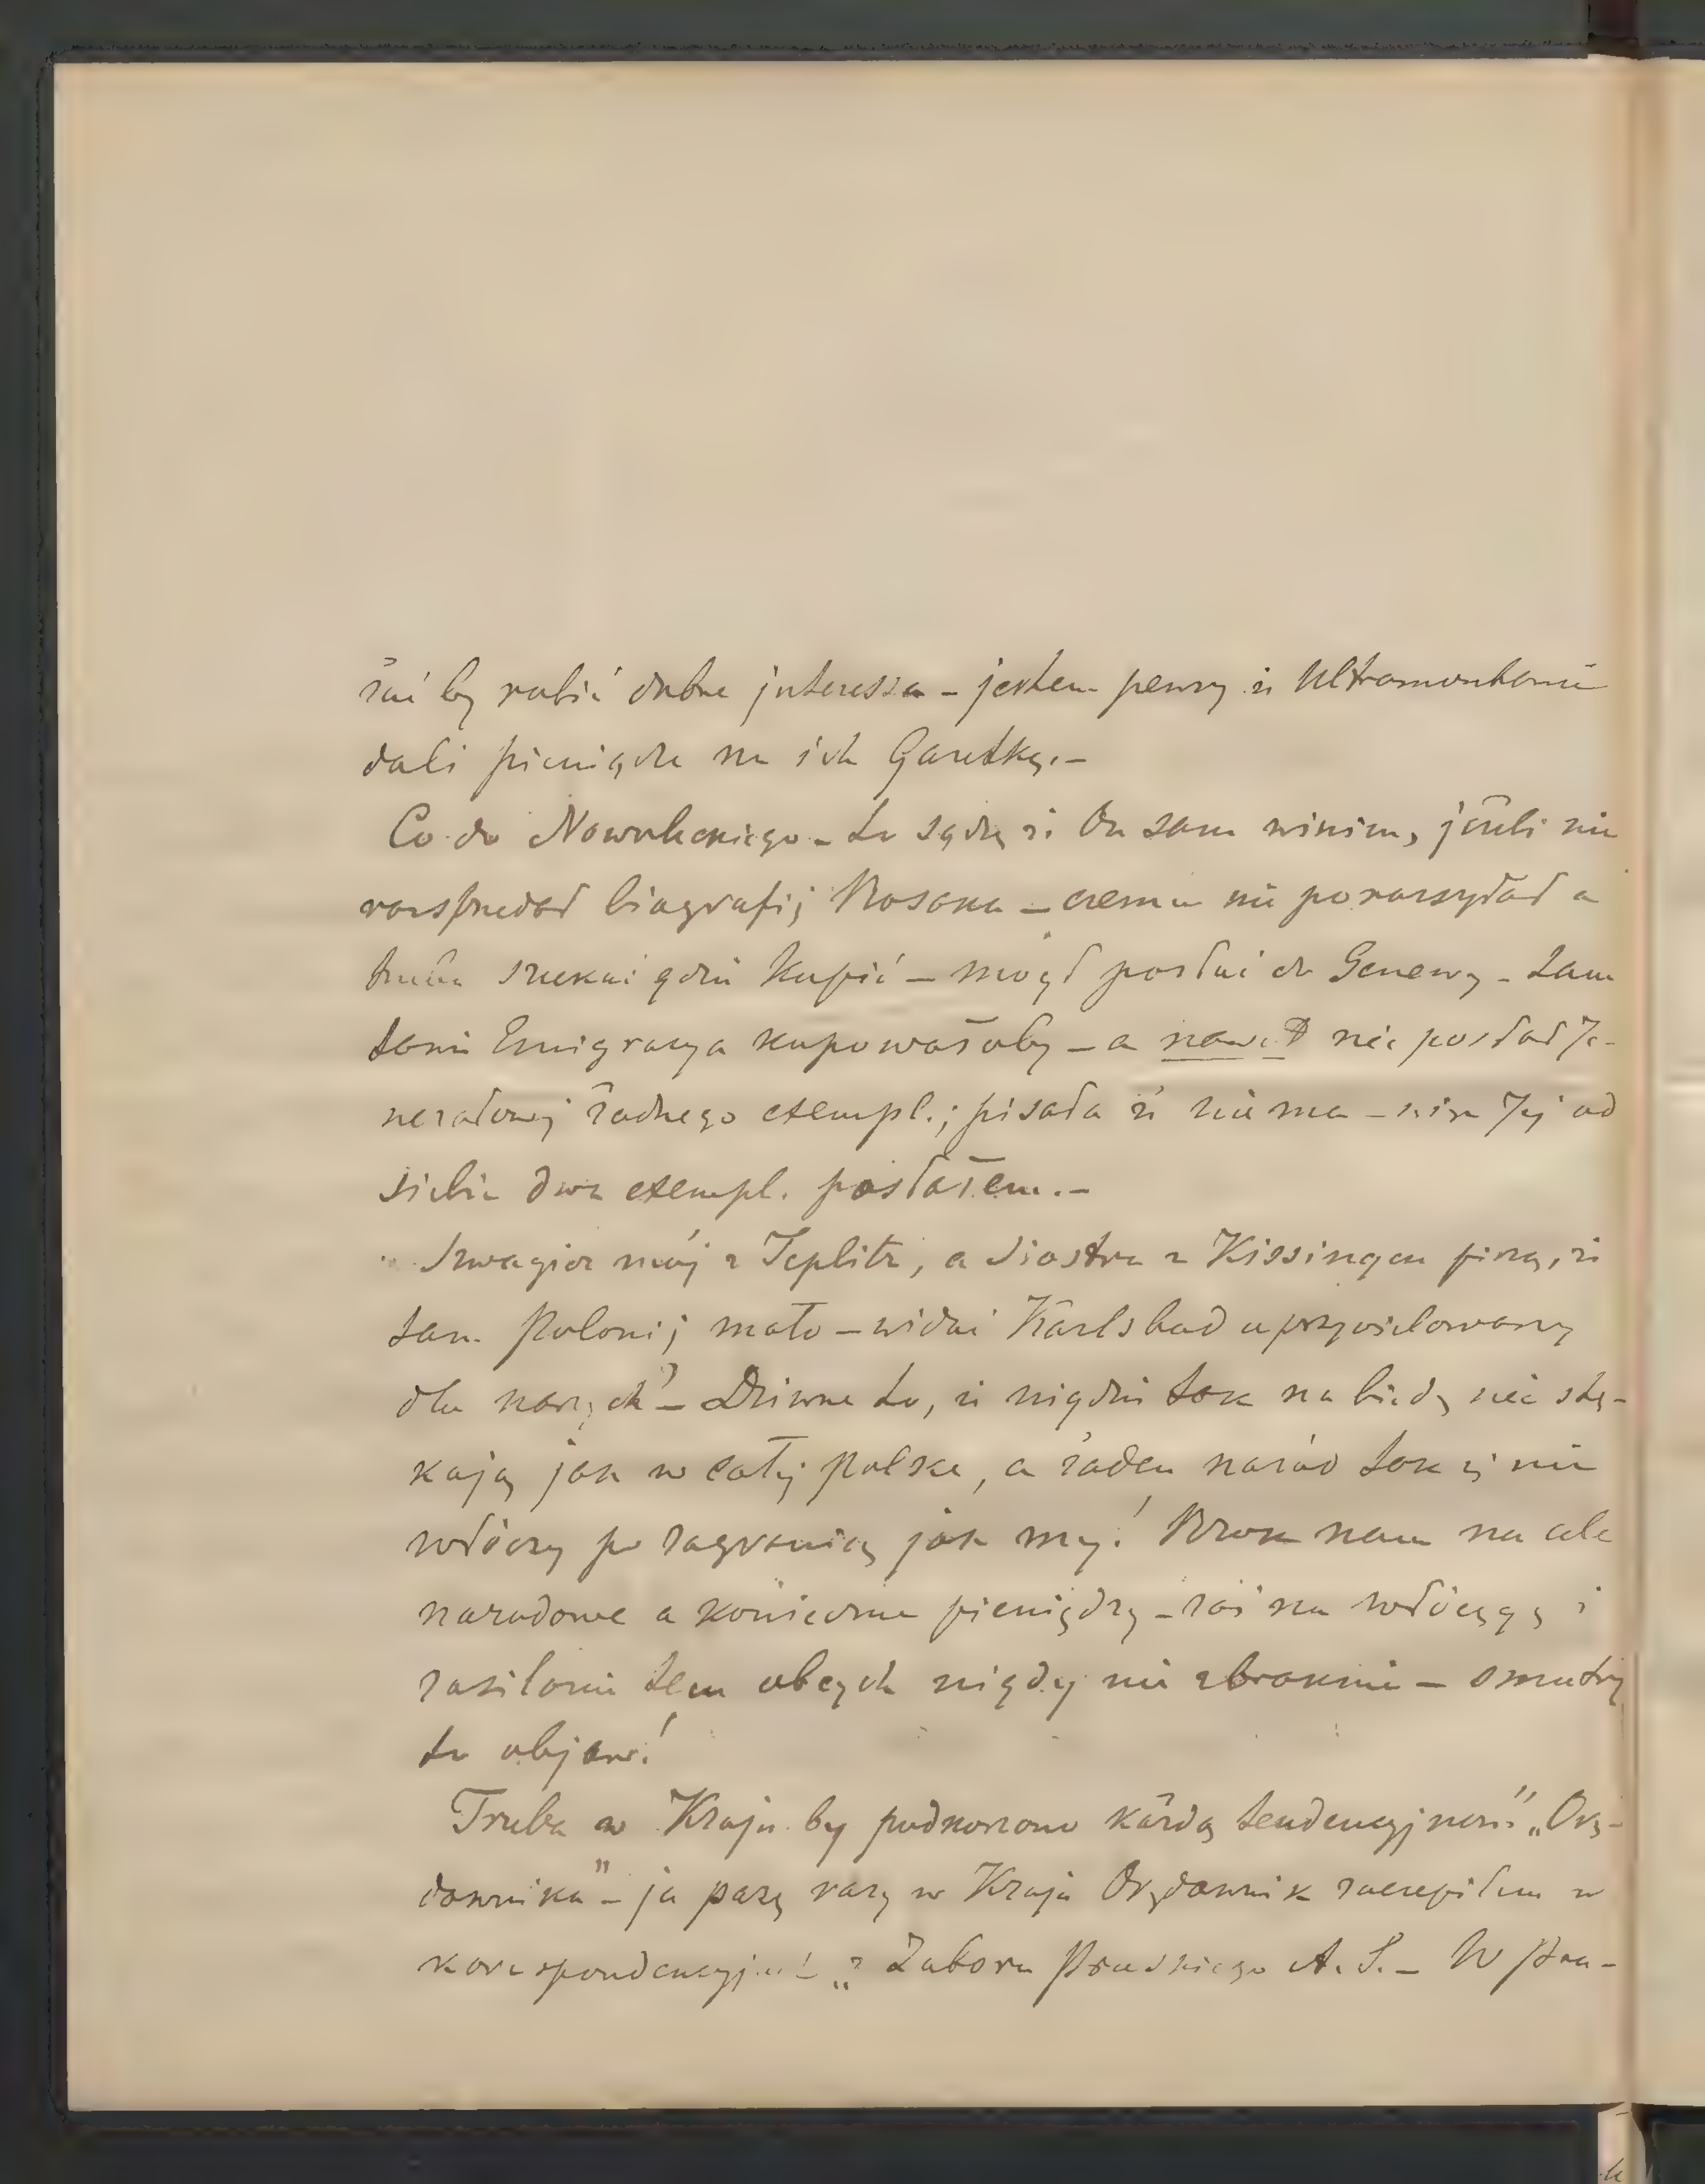 żać by robić dobre interessa – jestem pewny iż Ultramontanie
dali pieniądze na ich Gazetkę. –
Co do Nowoleckiego – to sądzę iż On sam winien, jeżeli nie
rozsprzedał biografij Bosaka – czemu nie porozsyłał a
trzeba szukać gdzie kupić – mógł posłać do Genewy – tam
tania Emigracya kupowałaby – a nawet nie posłał Je-
nerałowej żadnego exempl.; pisała iż nie ma – więc Jej od
siebie dwa exempl. posłałem. –
Szwagier mój z Teplitz, a Siostra z Kissingen piszą, iż
tam Polonij mało – widać Karlsbad uprzywilowany
dla naszych? – Dziwne to, iż nigdzie tak na biedę nie stę-
kają jak w całej Polsce, a żaden naród tak się nie
włóczy po zagranicą jak my! Brak nam na cele
narodowe a konieczne pieniędzy – zaś na włóczęgę i
zasilanie tem obcych nigdy nie zbraknie – smutny
to objaw!
Trzeba w Kraju by podnoszono każdą tendencyjność „Orę-
downika" – ja parę razy w Kraju Orędownik zaczepiłem w
korespondencyjach „z Zaboru Pruskiego A. S. – W Pra-